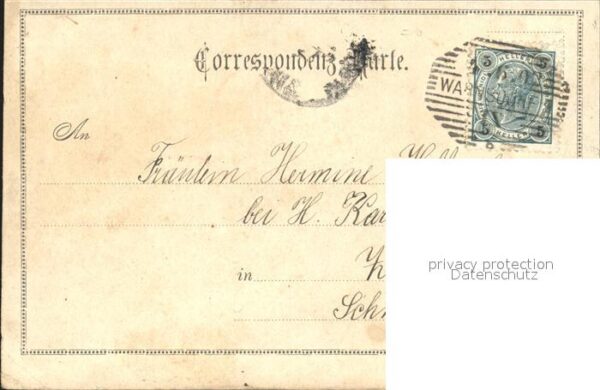 Correspondenz-Karte.
5 HELLER 5
WAR
5 HELLER 5
An
Fräulein Hermine
bei H. Kar
in
Schn
privacy protection
Datenschutz